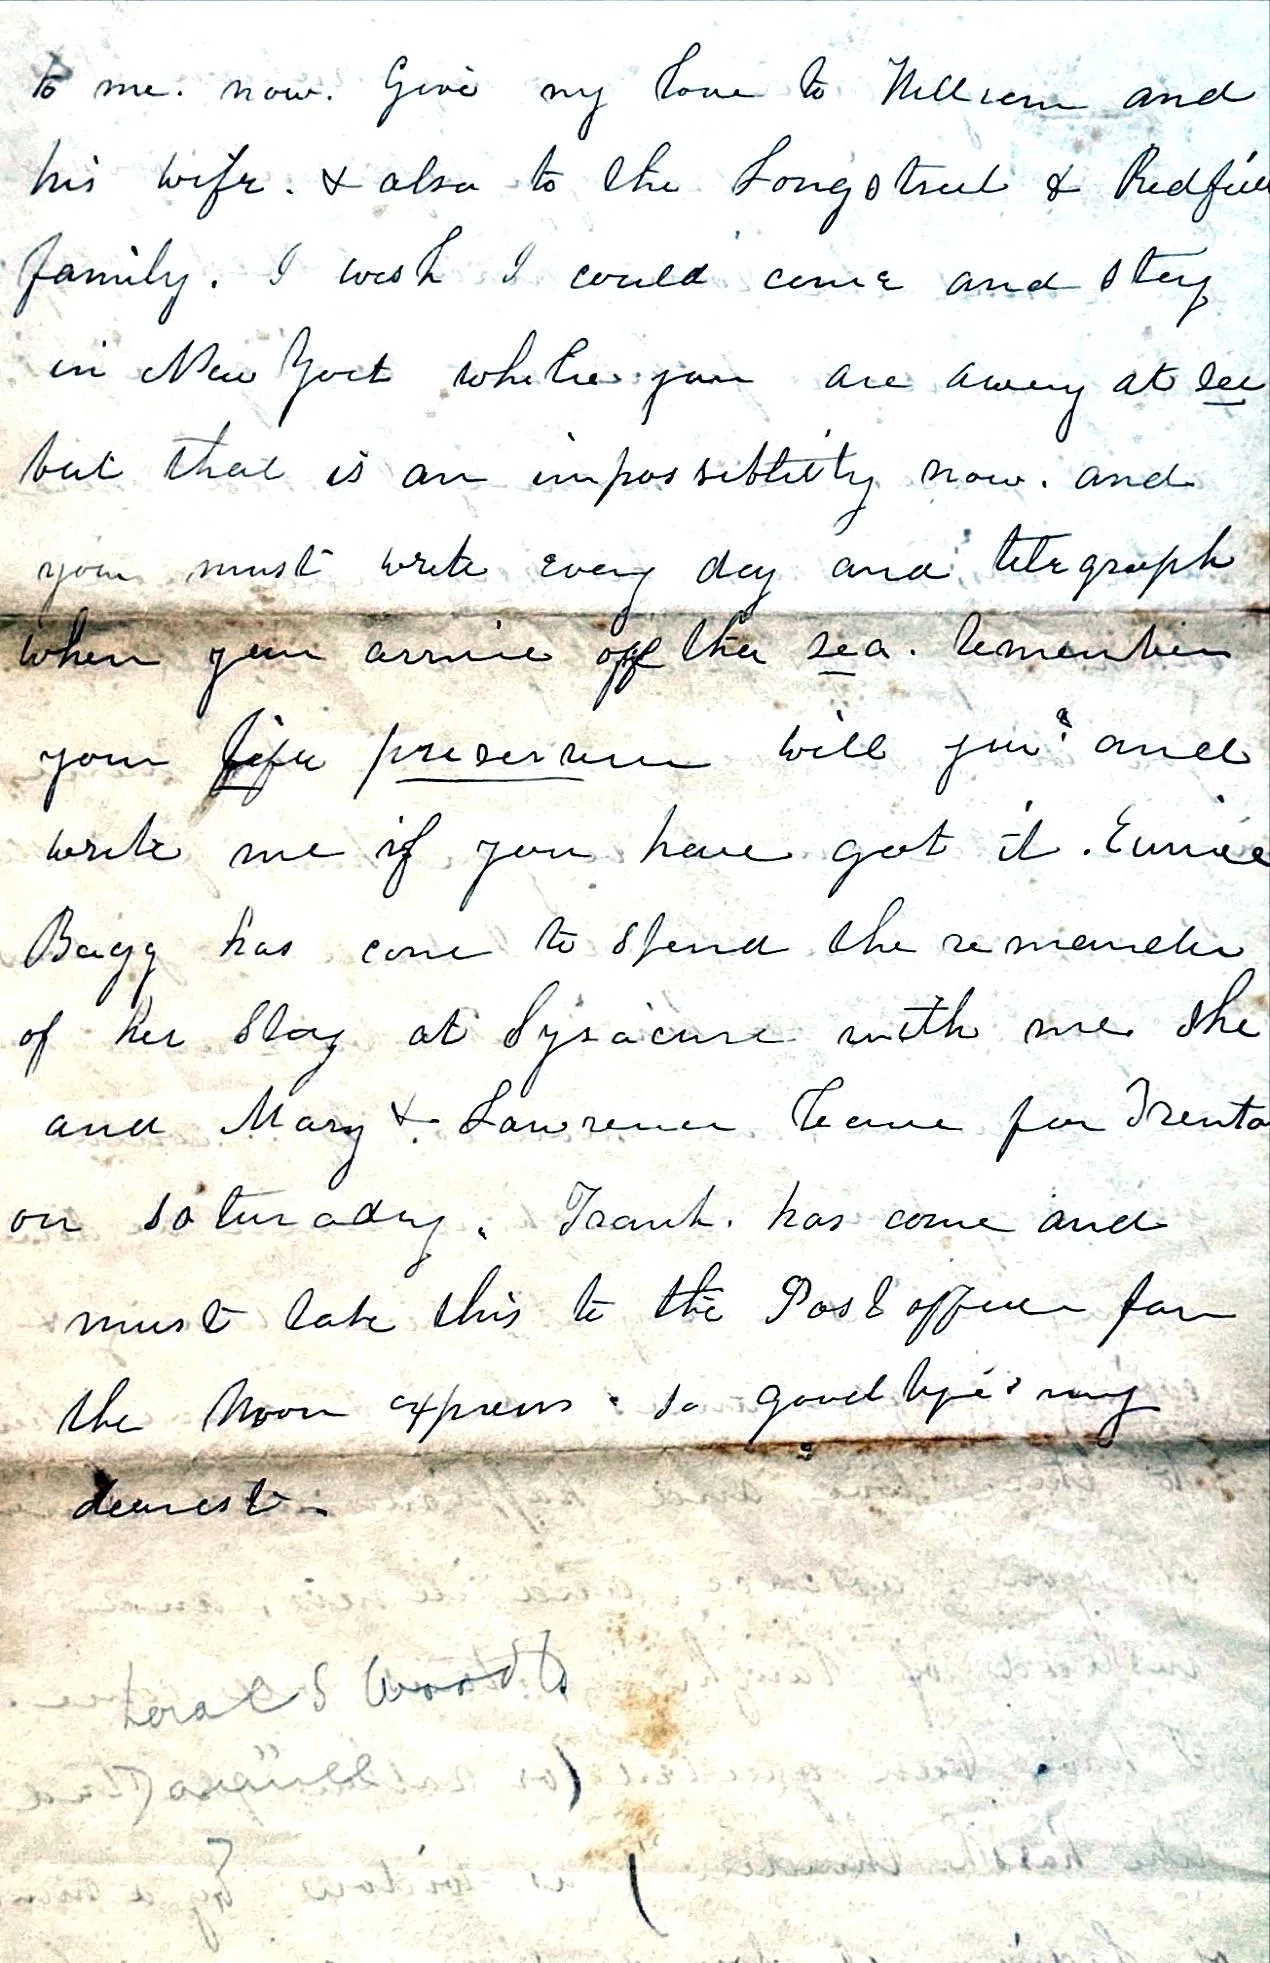 to me. now. Give my love to William and
his wife. & also to the Longstreet & Redfiel
family. I wish I could come and stay
in New York while you are away at sea
but that is an impossiblitty now. and
you must write every day and telegraph
when you arrive off the sea. remember
your life preserver will you? and
write me if you have got it. Eunice
Bagg has come to spend the remainder
of her stay at Sysacuse with me. She
and Mary & Lawrence leave for Trento
on saturady. Frank. has come and
must take this to the Post office for
the Noon express. so good bye. my
dearest.